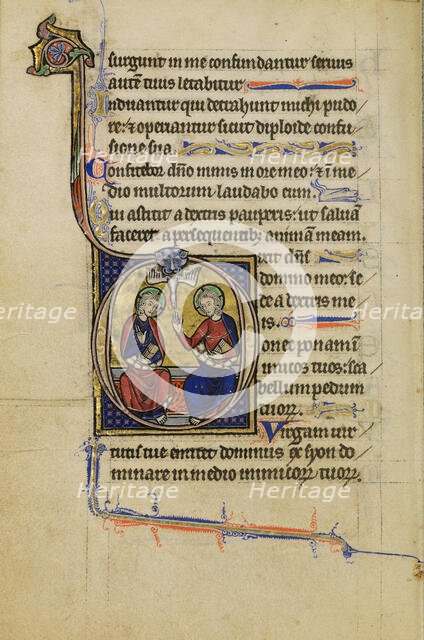 surgunt in me confundantur seruus
autē tuus letabitur
Induantur qui detrahunt michi pudo
re: & operiantur sicut diploide confu
sione sua.
Confitebor dño nimis in ore meo: & ī me
dio multorum laudabo eum.
Qui astitit a dextris pauperis: ut saluā
faceret a persequentibz animā meam.
ixit dñs
domino meo: se
de a dextris me
is.
onec ponam in
imicos tuos: sca
bellum pedum
tuorꝝ.
Virgam uir
tutis tue emittet dominus ex syon do
minare in medio inimicorꝝ tuorꝝ.
Heritage
Images
Heritage
Images
Heritage
Images
Heritage
Heritage
Heritage